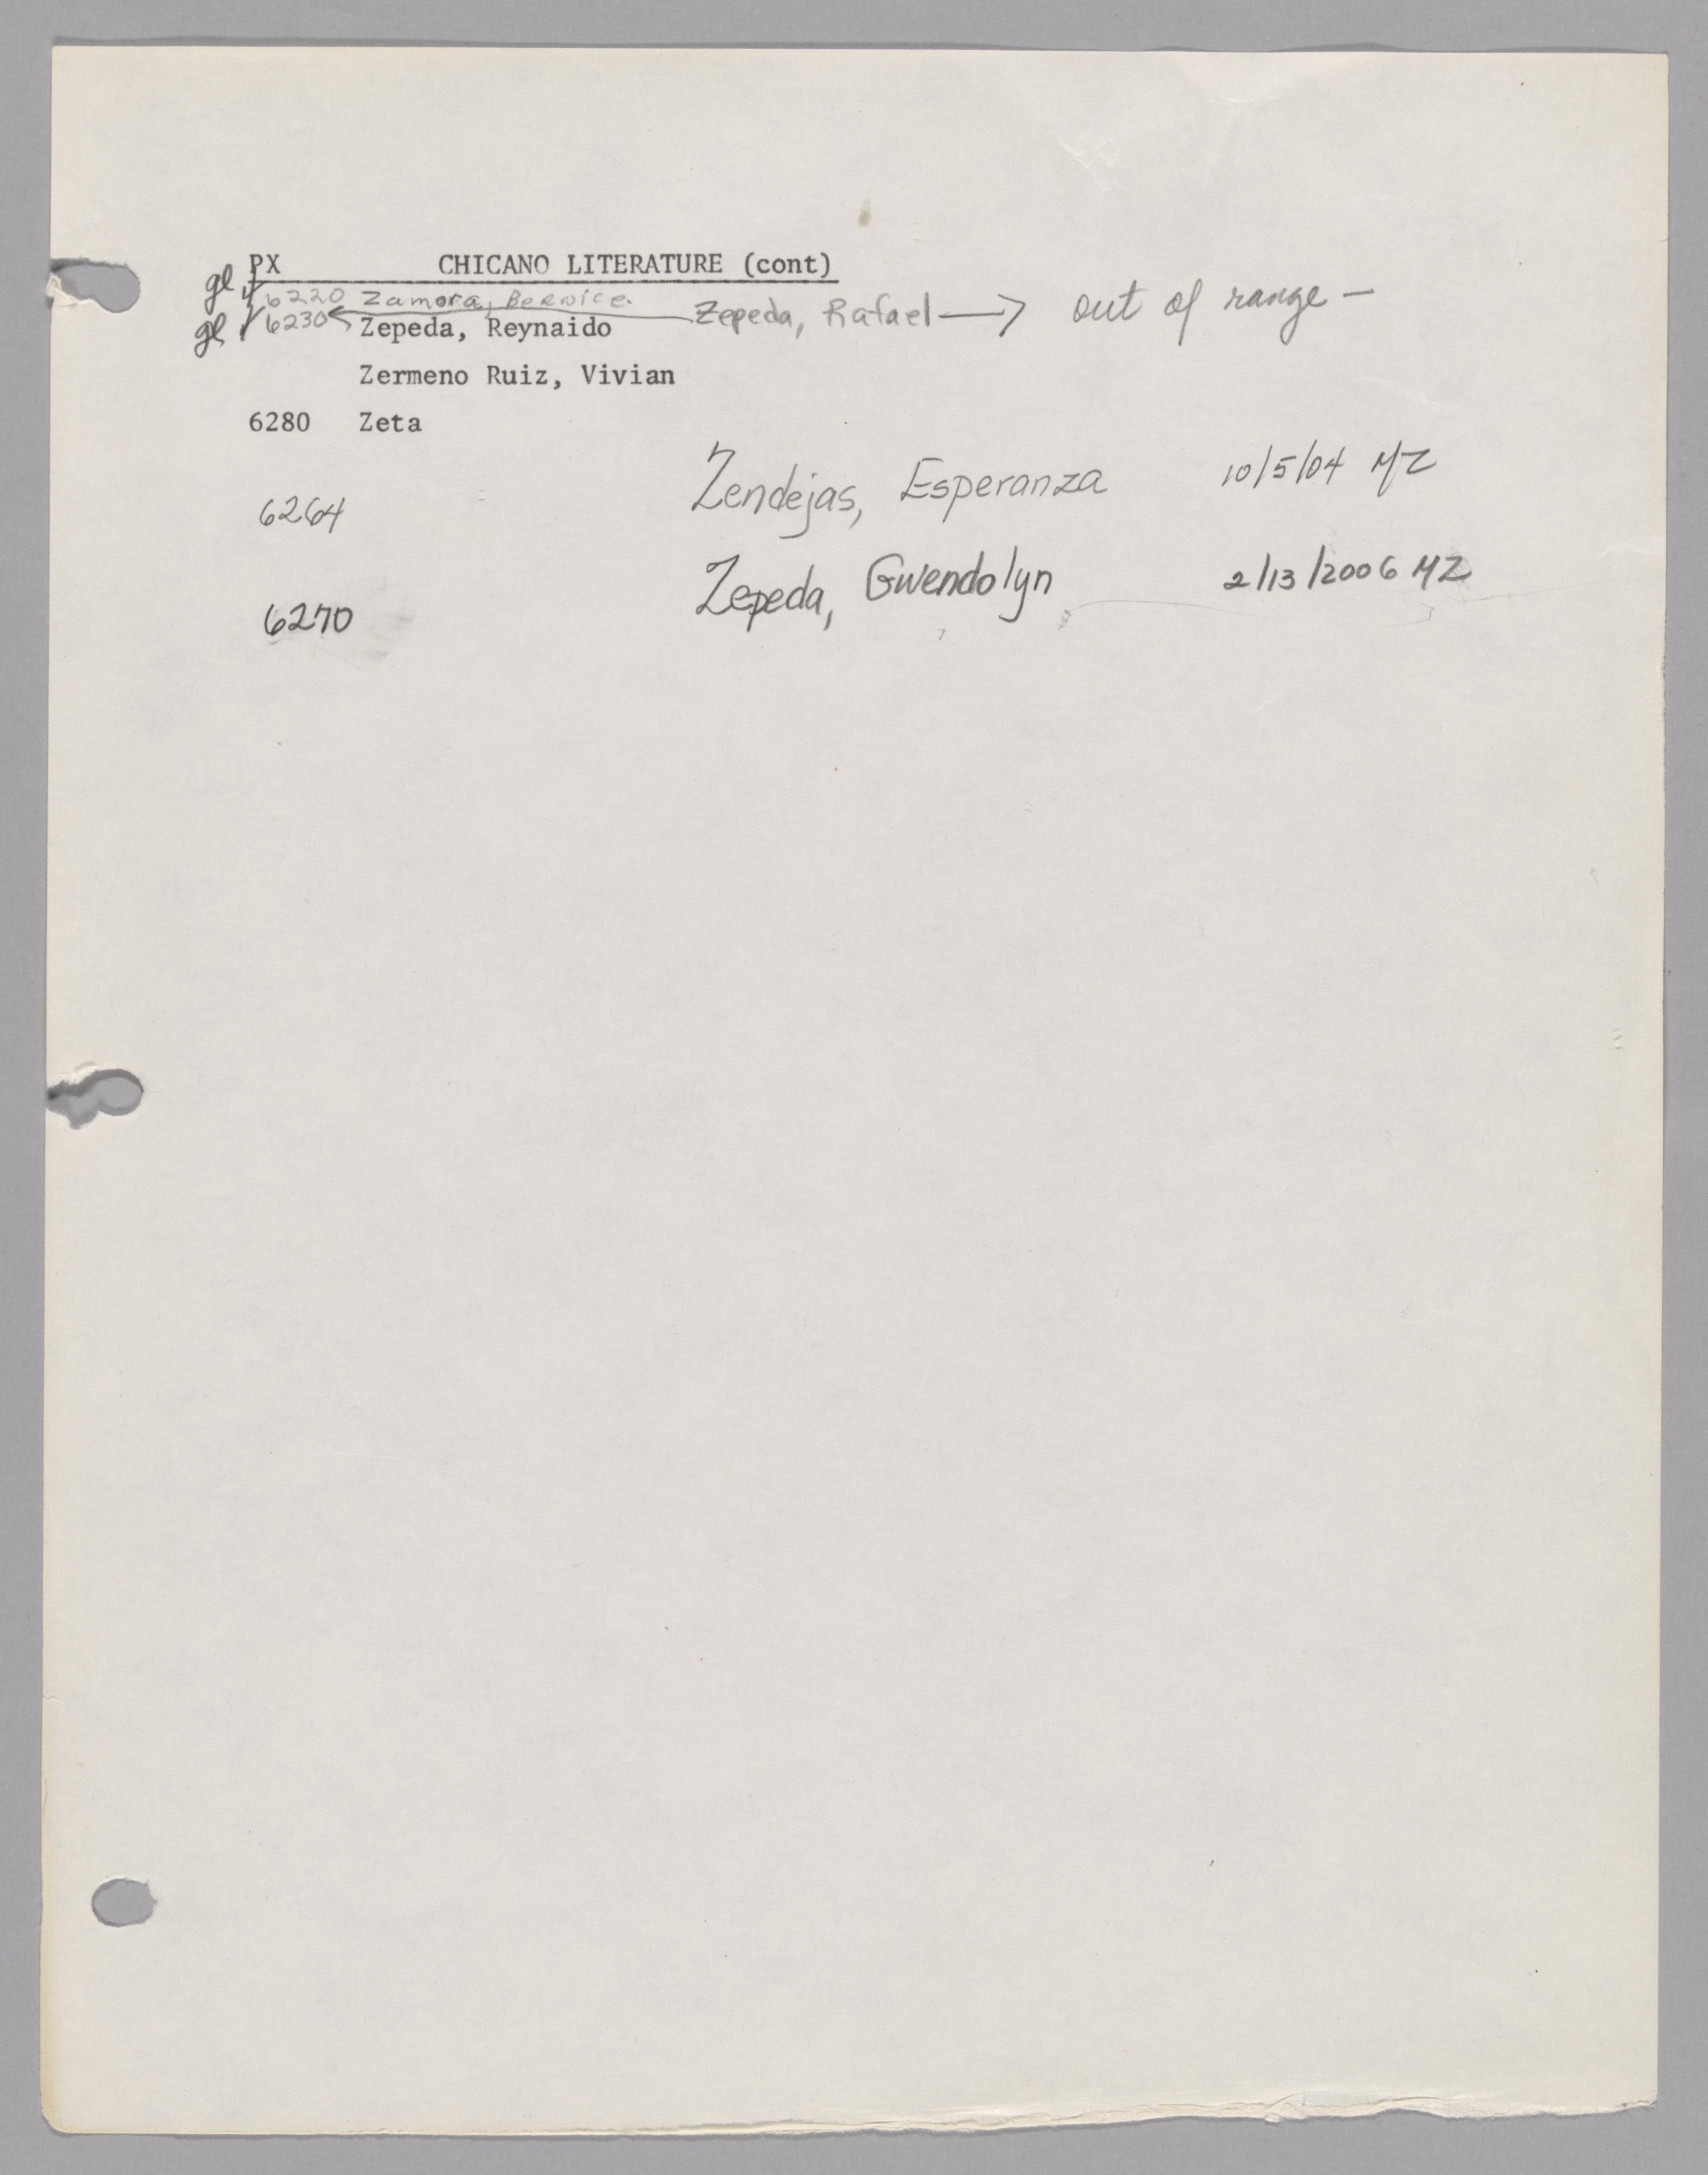 PX CHICANO LITERATURE (cont)
gl 6220 Zamora, Bernice
gl 6230 Zepeda, Rafael → out of range —
Zepeda, Reynaido
Zermeno Ruiz, Vivian
6280 Zeta
6264 Zendejas, Esperanza 10/5/04 MZ
6270 Zepeda, Gwendolyn 2/13/2006 MZ